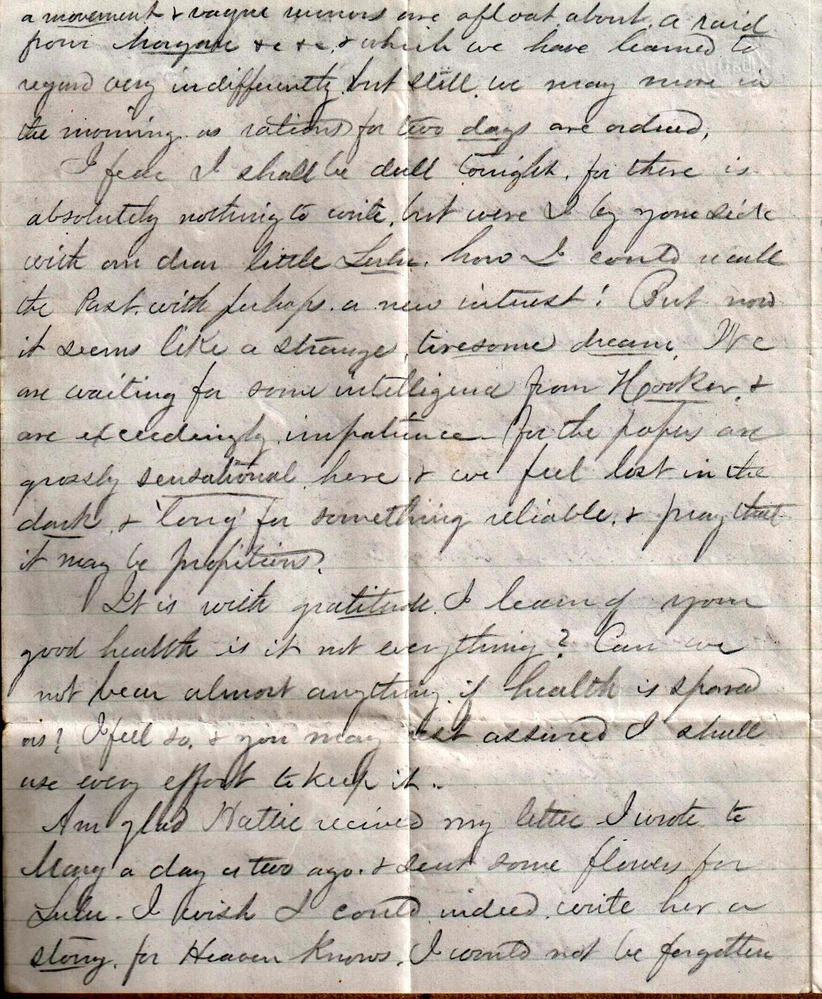 a movement & vague rumors are afloat about a raid
from Morgan &c &c, & which we have learned to
regard very indifferently, but still we may move in
the morning as rations for two days are ordered,
I fear I shall be dull tonight, for there is
absolutely nothing to write, but were I by your side
with our dear little Lulu, how I could recall
the Past, with perhaps a new interest! But now
it seems like a strange, tiresome dream. We
are waiting for some intelligence from Hooker, &
are exceedingly impatience - for the papers are
grossly sensational here & we feel lost in the
dark, & 'long' for something reliable, & pray that
it may be propitious.
It is with gratitude I learn of your
good health is it not everything? Can we
not bear almost anything if health is spared
us? I feel so, & you may rest assured I shall
use every effort to keep it.
Am glad Hattie recieved my letter I wrote to
Mary a day or two ago. & sent some flowers for
Lulu - I wish I could indeed write her a
story, for Heaven knows, I would not be forgotten